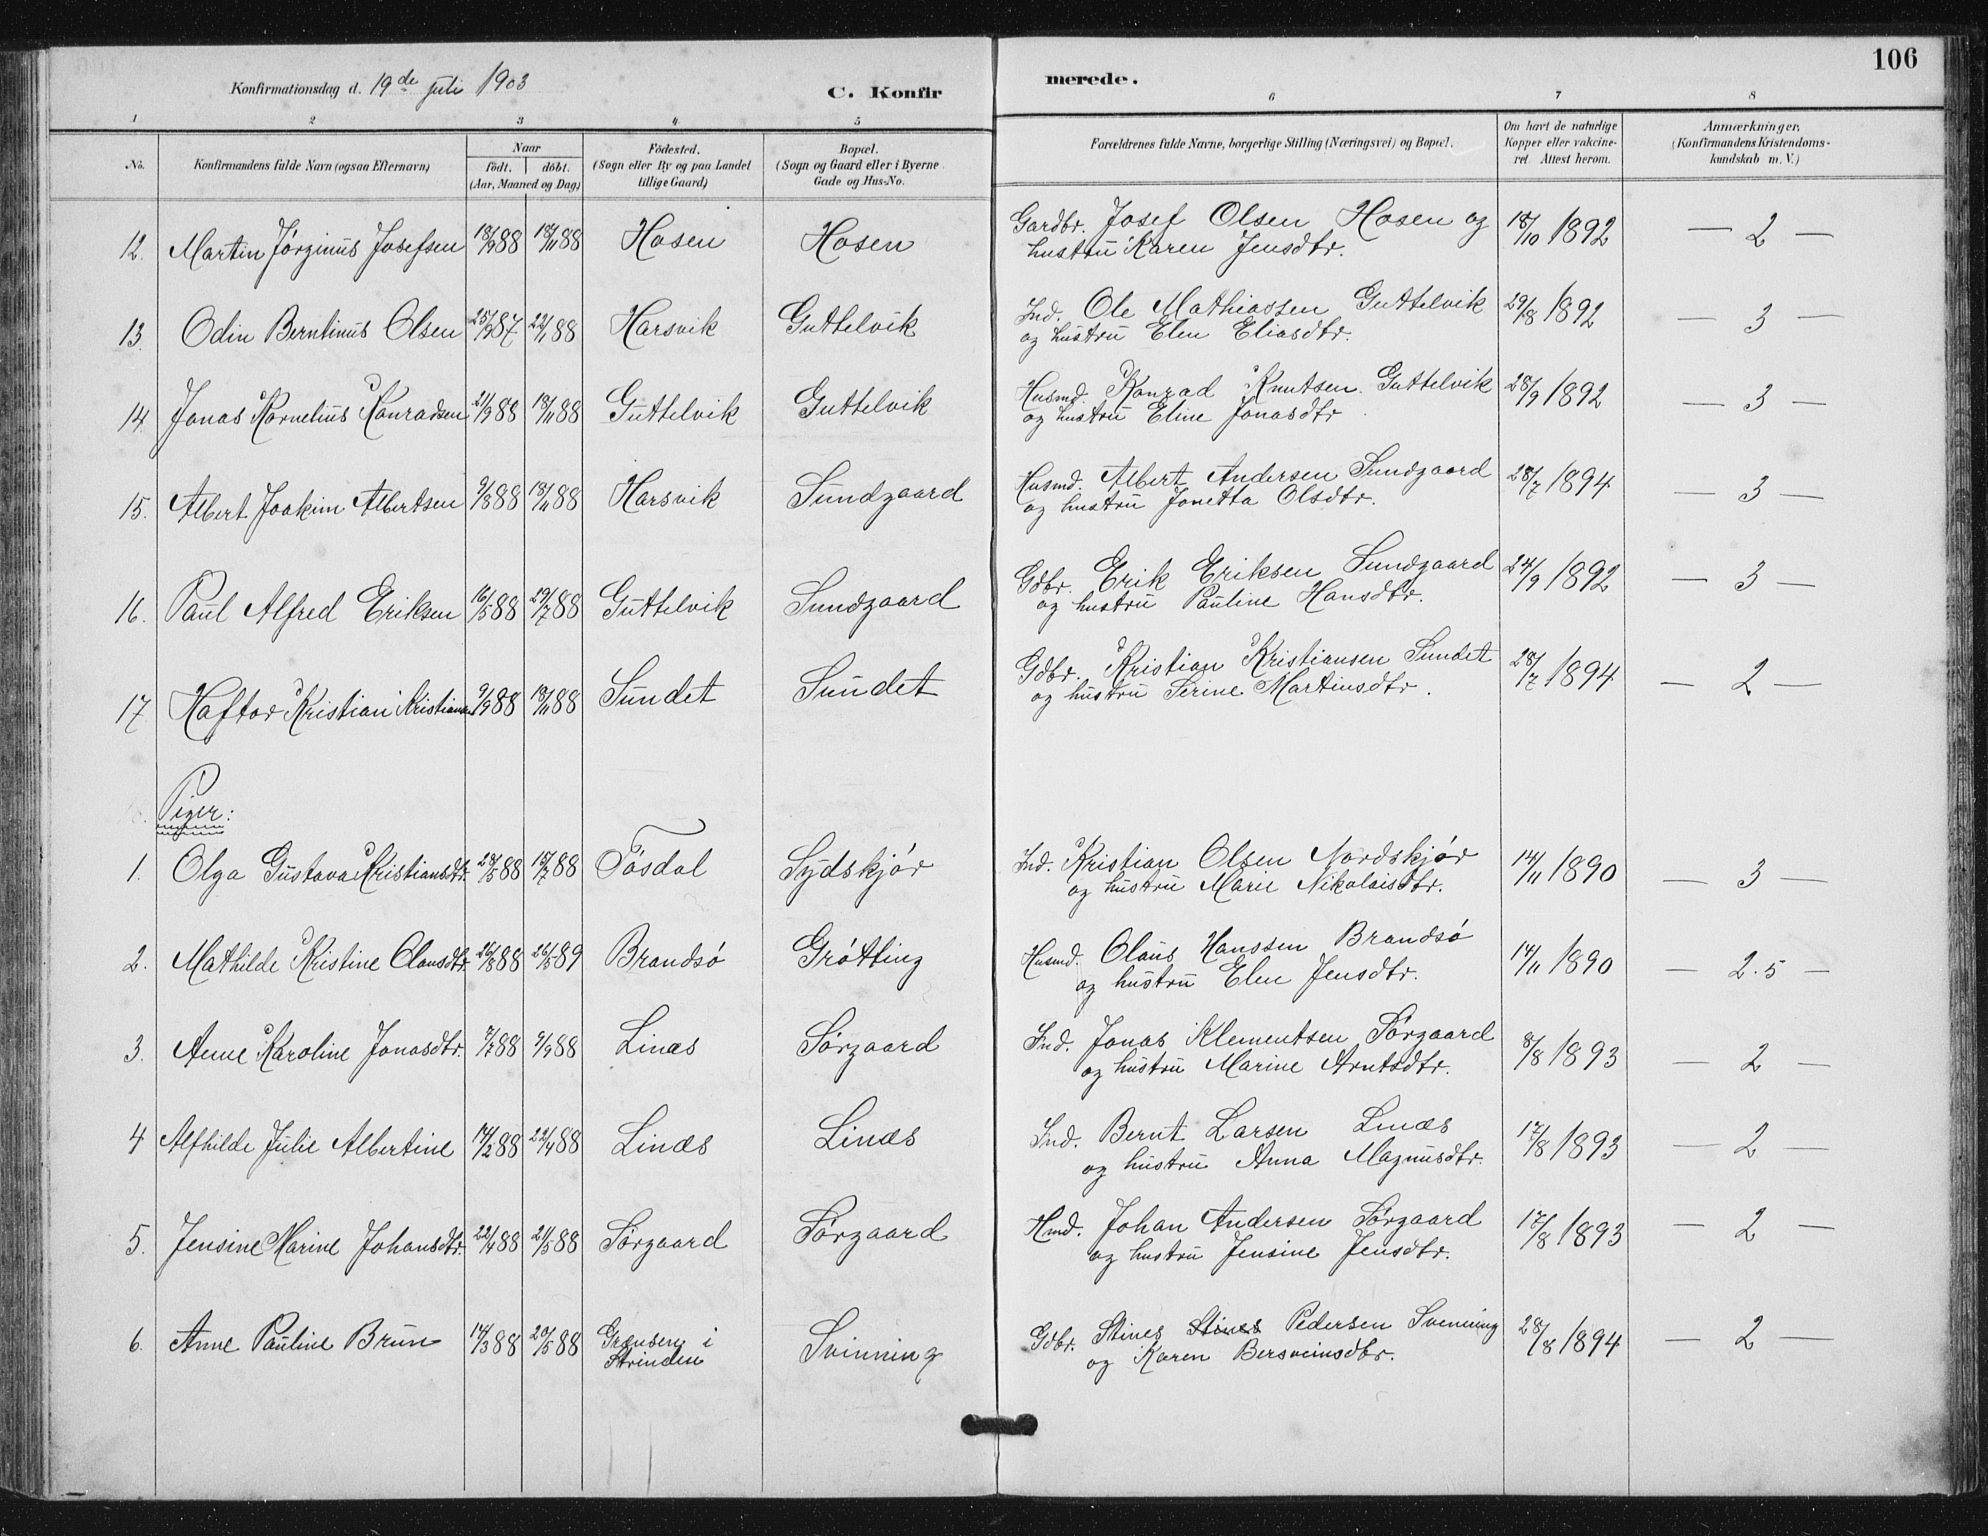 106
Konfirmationsdag d. 19de juli 1903
C. Konfirmerede.
1 2 3 4 5 6 7 8
No. Konfirmandens fulde Navn (ogsaa Efternavn) Naar født. døbt. (Aar, Maaned og Dag) Fødested. (Sogn eller By og paa Landet tillige Gaard) Bopæl. (Sogn og Gaard eller i Byerne Gade og Hus-No. Forældrenes fulde Navne, borgerlige Stilling (Næringsvei) og Bopæl. Om havt de naturlige Kopper eller vakcineret Attest herom. Anmærkninger. (Konfirmandens Kristendomskundskab m. V.)
12. Martin Jørginus Josefsen 13/9 88 18/11 88 Hosen Hosen Gardbr. Josef Olsen Hosen og 18/10 1892 — 2 —
hustru Karen Jensdtr.
13. Odin Berntinus Olsen 25/9 87 22/1 88 Harsvik Guttelvik Ind. Ole Mathiassen Guttelvik 29/8 1892 — 3 —
og hustru Elen Eliasdtr.
14. Jonas Kornelius Konradsen 21/9 88 18/11 88 Guttelvik Guttelvik Husmd. Konrad Knutsen Guttelvik 28/9 1892 — 3 —
og hustru Eline Jonasdtr
15. Albert Joakim Albertsen 9/8 88 18/11 88 Harsvik Sundgaard Husmd. Albert Andersen Sundgaard 28/7 1894 — 3 —
og hustru Jonetta Olsdtr.
16. Paul Alfred Eriksen 16/5 88 29/7 88 Guttelvik Sundgaard Gdbr. Erik Eriksen Sundgaard 24/9 1892 — 3 —
og hustru Pauline Hansdtr.
17 Haftor Kristian Kristians 9/9 88 18/11 88 Sundet Sundet Gdbr. Kristian Kristiansen Sundet 28/7 1894 — 2 —
og hustru Serine Martinsdtr.
Piger:
1. Olga Gustava Kristiansdtr. 28/5 88 15/7 88 Tøsdal Sydskjør Ind. Kristian Olsen Nordskjør 14/11 1890 — 3 —
og hustru Marie Nikolaisdtr.
2. Mathilde Kristine Olausdtr. 26/8 88 26/5 89 Brandsø Grøtting Husmd. Olaus Hanssen Brandsø 14/11 1890 — 2.5 —
og hustru Elen Jensdtr.
3. Anne Karoline Jonasdtr. 7/7 88 9/9 88 Linæs Sørgaard Ind. Jonas Klementsen Sørgaard 8/8 1893 — 2 —
og hustru Marine Arntsdtr.
4 Alfhilde Julie Albertine 14/2 88 22/4 88 Linæs Linæs Ind. Bernt Larsen Linæs 17/8 1893 — 2 —
og hustru Anna Magnusdtr.
5. Jensine Marine Johansdtr. 22/4 88 21/5 88 Sørgaard Sørgaard Hmd. Johan Andersen Sørgaard 17/8 1893 — 2 —
og hustru Jensine Jensdtr.
6. Anne Pauline Brun 14/3 88 20/5 88 Grensen i Svinning Gdbr. Stines Stines Pedersen Svenning 28/8 1894 — 2 —
Strinden og Karen Bersveinsdtr.